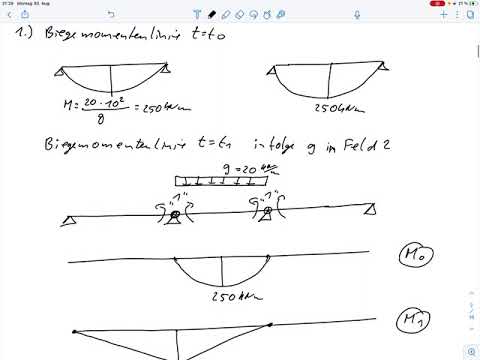 21:29 Montag 30. Aug.
1.) Biegemomentenlinie t=t0
M = 20·10² / 8 = 250 kNm
250 kNm
Biegemomentenlinie t=t1 infolge g in Feld 2
g=20 kN/m
"1" "1"
M0
250 kNm
M1